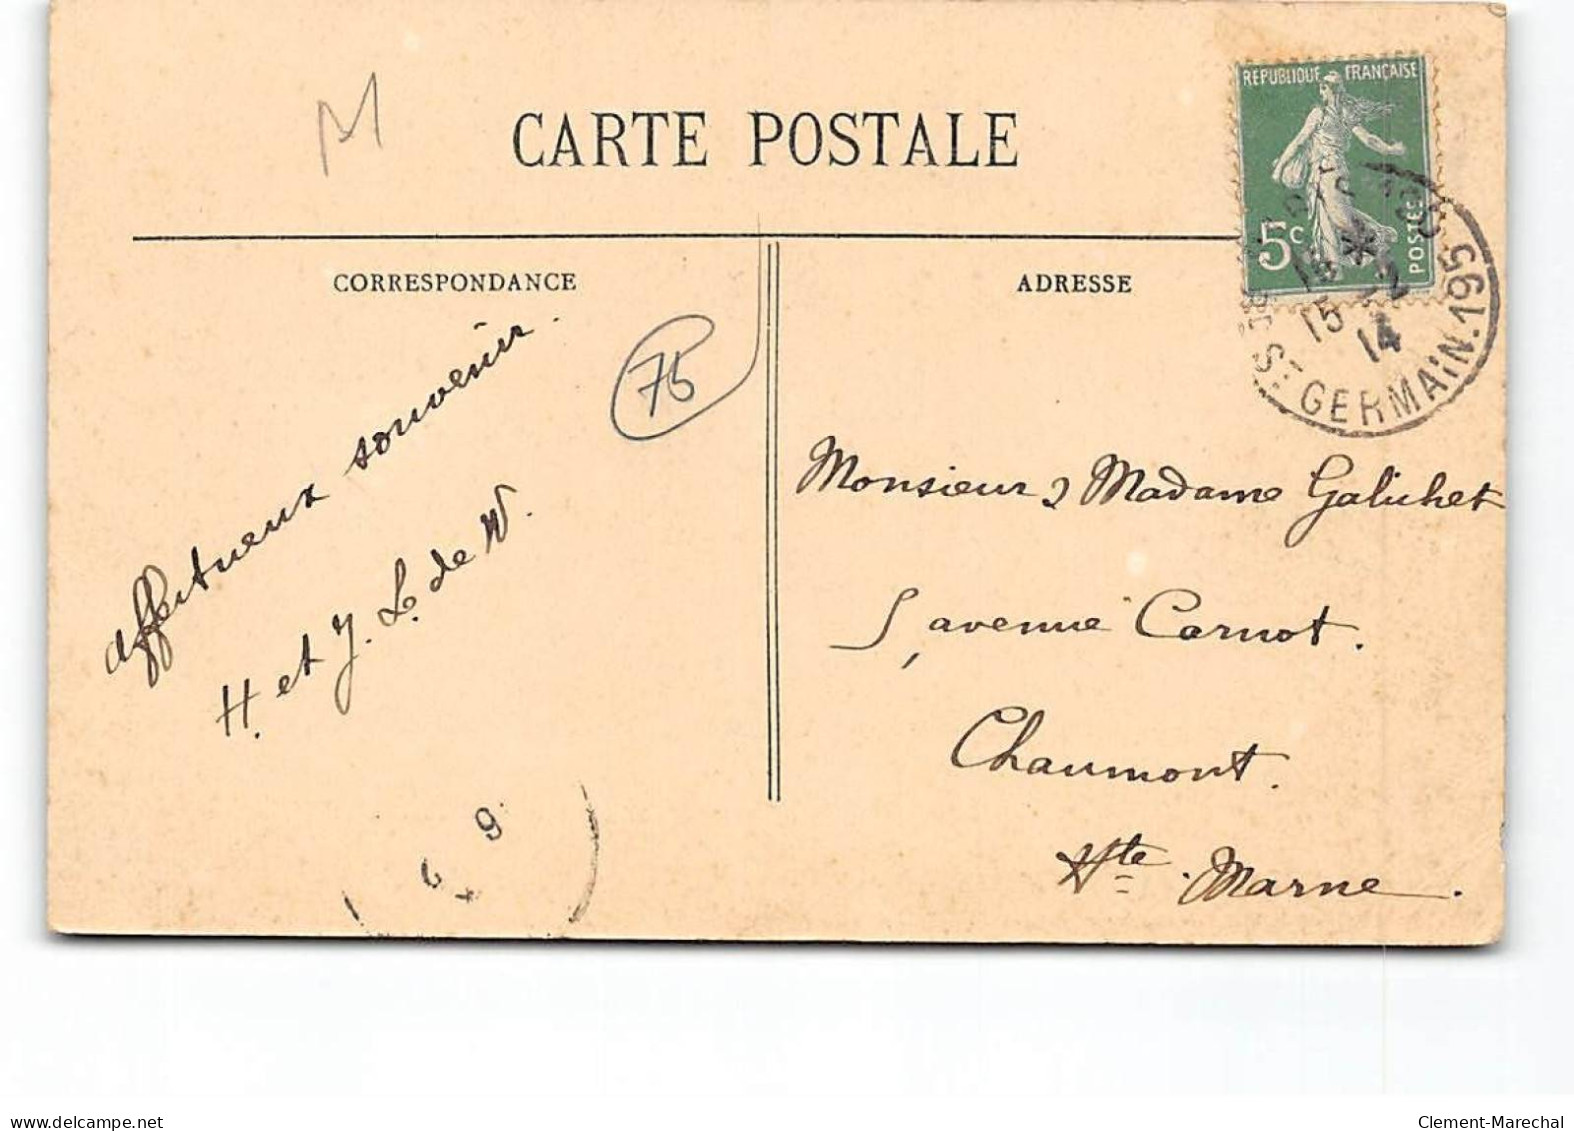 M
CARTE POSTALE
RÉPUBLIQUE FRANÇAISE
5c
POSTES
15
14
Bd St GERMAIN. 195
CORRESPONDANCE
ADRESSE
75
affectueux souvenir.
H. et J. L. de W.
Monsieur & Madame Galichet
5, avenue Carnot.
Chaumont.
Hte. Marne.
6
2
delcampe.net
Clement-Marechal